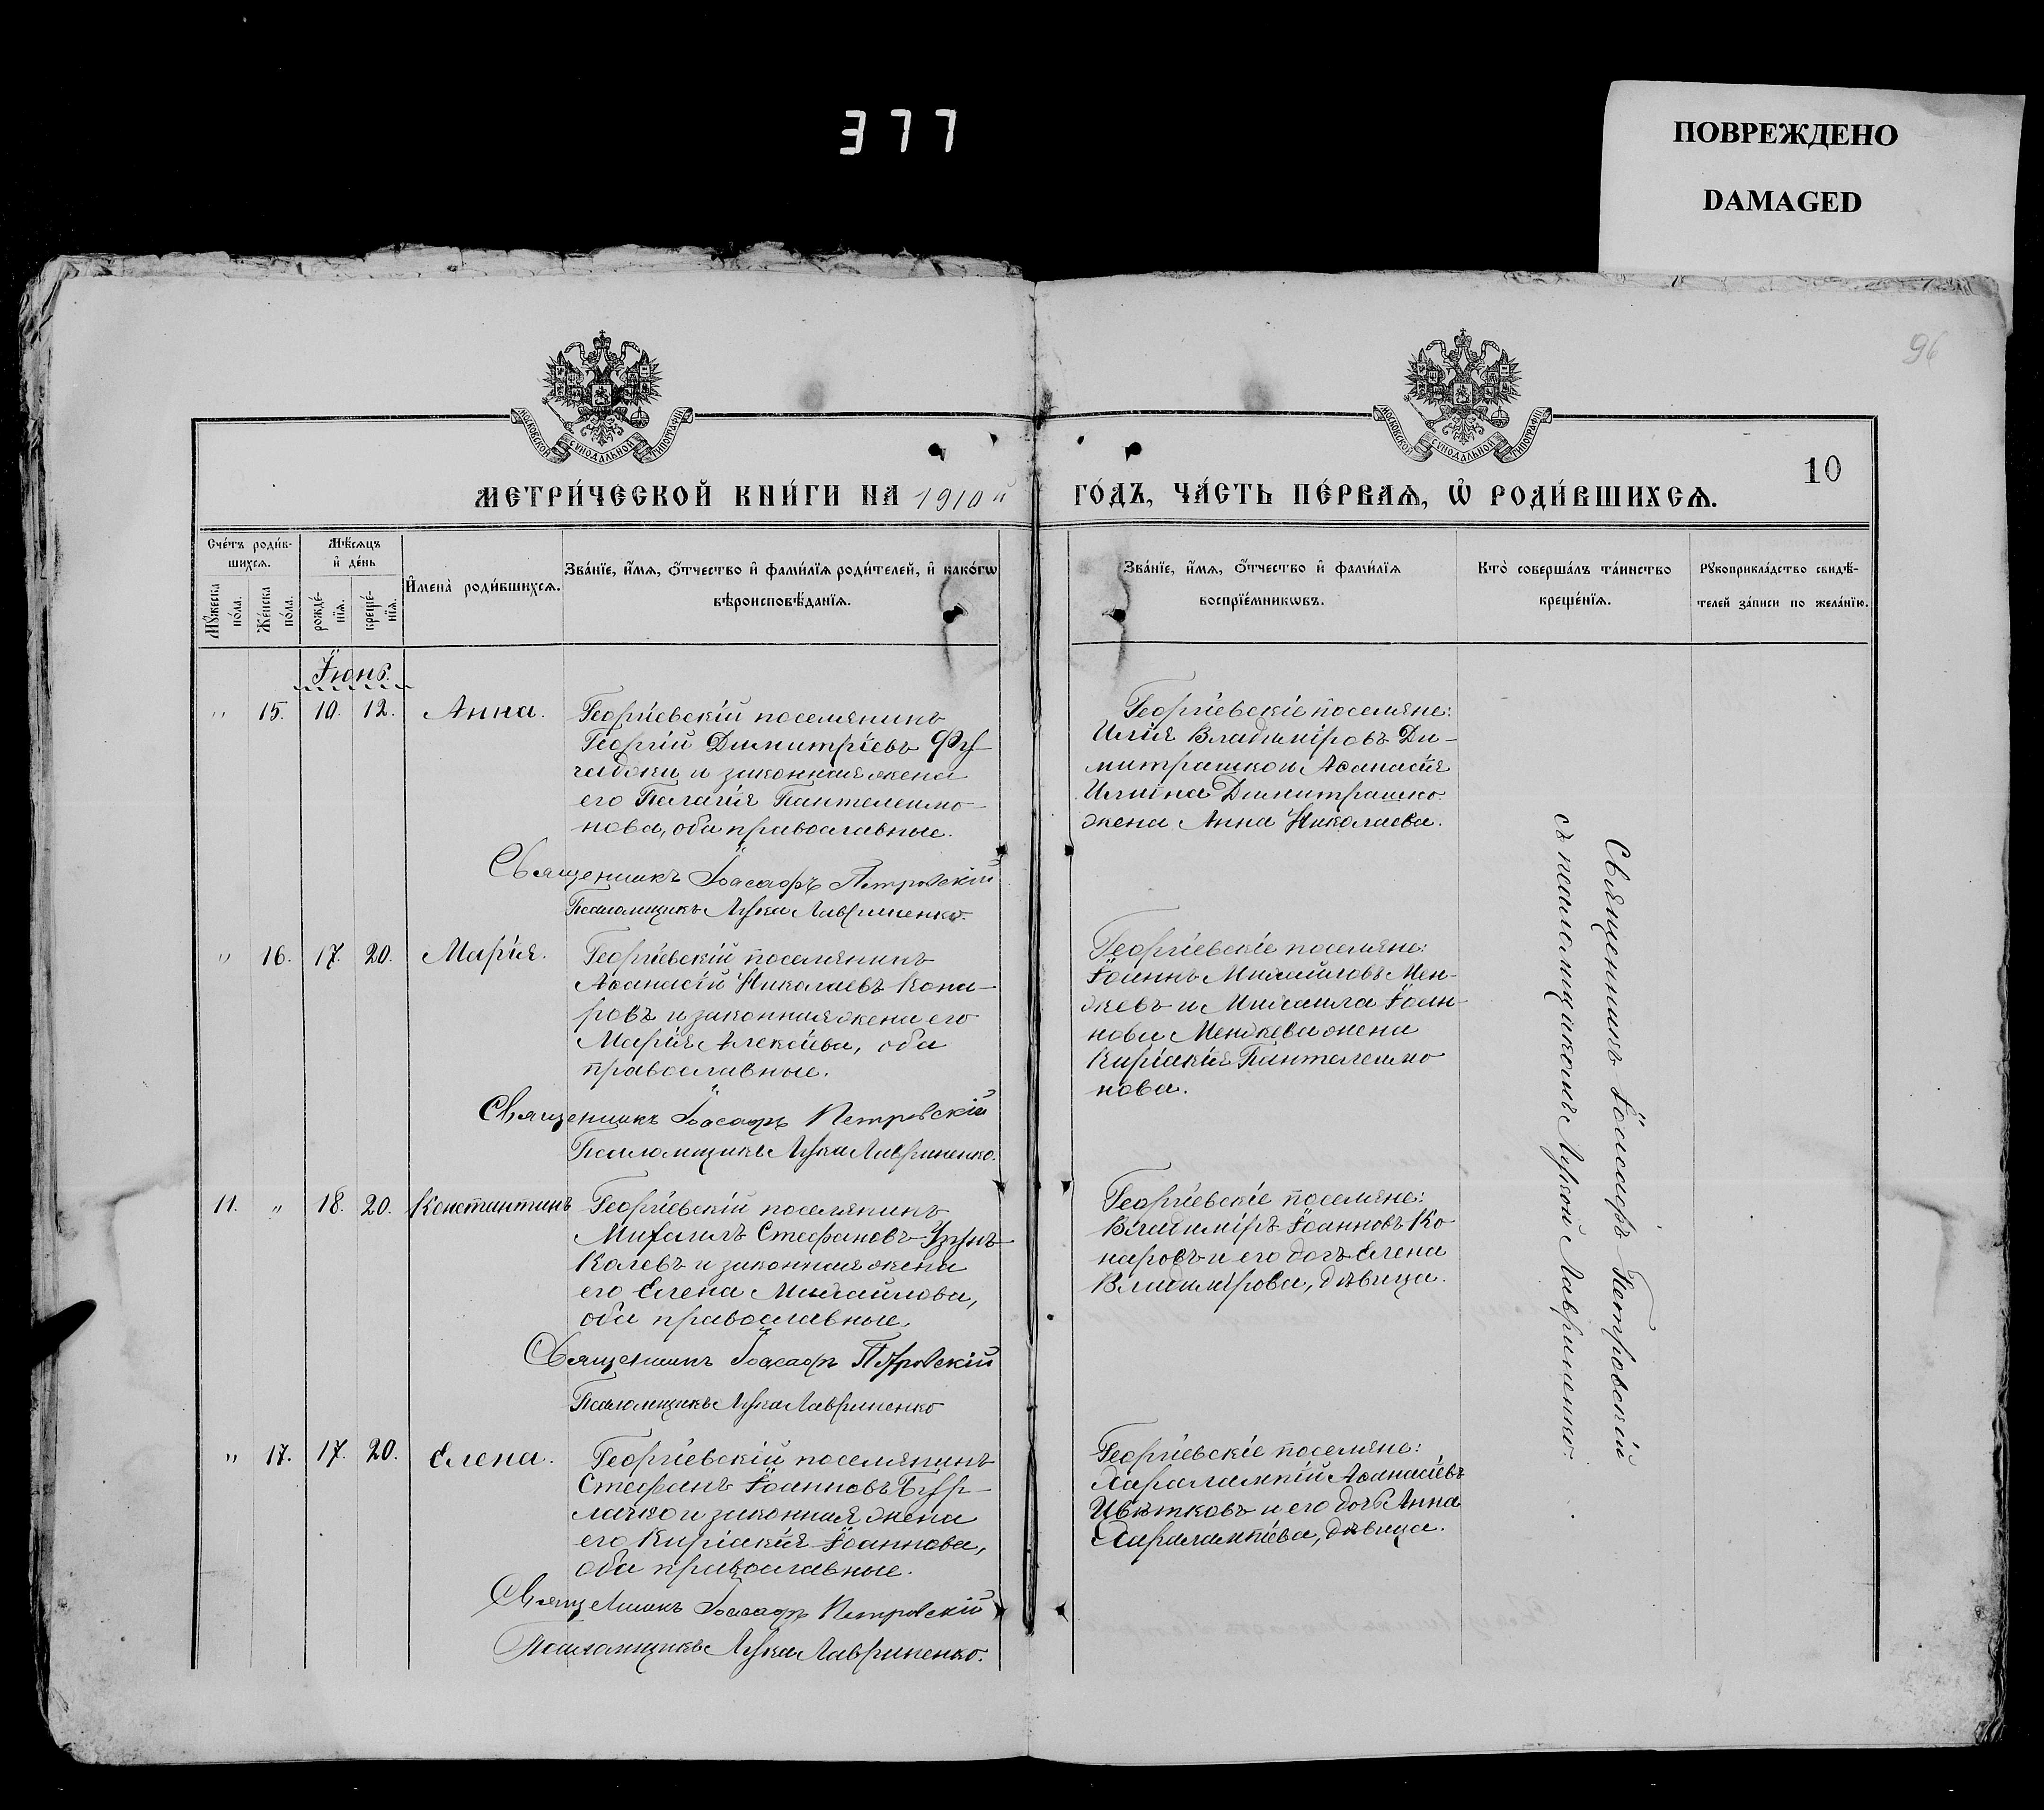 377
ПОВРЕЖДЕНО
DAMAGED
96
МОСКОВСКОЙ СѴНОДАЛЬНОЙ ТИПОГРАФІИ
МОСКОВСКОЙ СѴНОДАЛЬНОЙ ТИПОГРАФІИ
10
МЕТРИ́ЧЕСКОЙ КНИ́ГИ НА 1910й ГО́ДЪ, ЧА́СТЬ ПЕ́РВАѦ, Ѡ҆ РОДИ́ВШИХСѦ.
Сче́тъ роди́в-
шихсѧ.
Мꙋ́жеска
по́ла.
Же́нска
по́ла.
Мѣ́сѧцъ
и҆ де́нь
рожде́-
нїѧ.
креще́-
нїѧ.
И҆мена̀ роди́вшихсѧ.
Зва́нїе, и҆́мѧ, ѻ҆́тчество и҆ фами́лїѧ роди́телей, и҆ како́гѡ
вѣроисповѣ́данїѧ.
Зва́нїе, и҆́мѧ, ѻ҆́тчество и҆ фами́лїѧ
воспрїе́мникѡвъ.
Кто̀ соверша́лъ та́инство
креще́нїѧ.
Рꙋкоприкла́дство свидѣ́-
телей за́писи по жела́нїю.
Іюнь.
" 15. 10. 12. Анна.
Георгіевскій поселянинъ
Георгій Димитріевъ Фу-
чаджи и законная жена
его Пелагія Пантелеимо-
нова, оба православные.
Священникъ Іоасафъ Петровскій
Псаломщикъ Лука Лавриненко.
Георгіевскіе поселяне:
Илія Владиміровъ Ди-
митрашко и Аѳанасія
Иліина Димитрашко
жена Анна Николаева.
" 16. 17. 20. Марія.
Георгіевскій поселянинъ
Аѳанасій Николаевъ Кона-
ровъ и законная жена его
Марія Алексіева, оба
православные.
Священникъ Іоасафъ Петровскій
Псаломщикъ Лука Лавриненко.
Георгіевскіе поселяне:
Іоаннъ Михайловъ Мен-
жевъ и Михаила Іоан-
нова Менжева жена
Киріакія Пантелеимо
нова.
11. " 18. 20. Константинъ
Георгіевскій поселянинъ
Михаилъ Стефановъ Узунъ-
Колевъ и законная жена
его Елена Михайлова,
оба православные.
Священникъ Іоасафъ Петровскій
Псаломщикъ Лука Лавриненко
Георгіевскіе поселяне:
Владиміръ Іоанновъ Ко-
наровъ и его дочь Елена
Владимірова, дѣвица.
" 17. 17. 20. Елена.
Георгіевскій поселянинъ
Стефанъ Іоанновъ Бур-
лачко и законная жена
его Киріакія Іоаннова,
оба православные.
Священникъ Іоасафъ Петровскій
Псаломщикъ Лука Лавриненко.
Георгіевскіе поселяне:
Харалампій Аѳанасіевъ
Цвѣтковъ и его дочь Анна
Харалампіева, дѣвица.
Священникъ Іоасафъ Петровскій
съ псаломщикомъ Лукой Лавриненко.